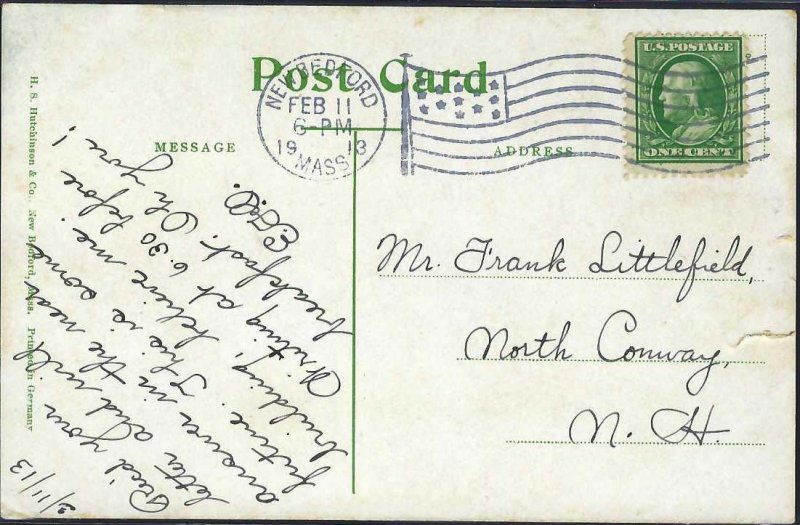 Post Card
NEW BEDFORD
FEB 11
6-PM
1913
MASS.
U.S. POSTAGE
ONE CENT
MESSAGE
ADDRESS
H. S. Hutchinson & Co., New Bedford, Mass. Printed in Germany
2/11/13
Rec'd your
letter and will
answer in the near
future. This is some
building, believe me.
Writing at 6.30 before
breakfast. Oh you!
Mr. Frank Littlefield,
North Conway,
N. H.